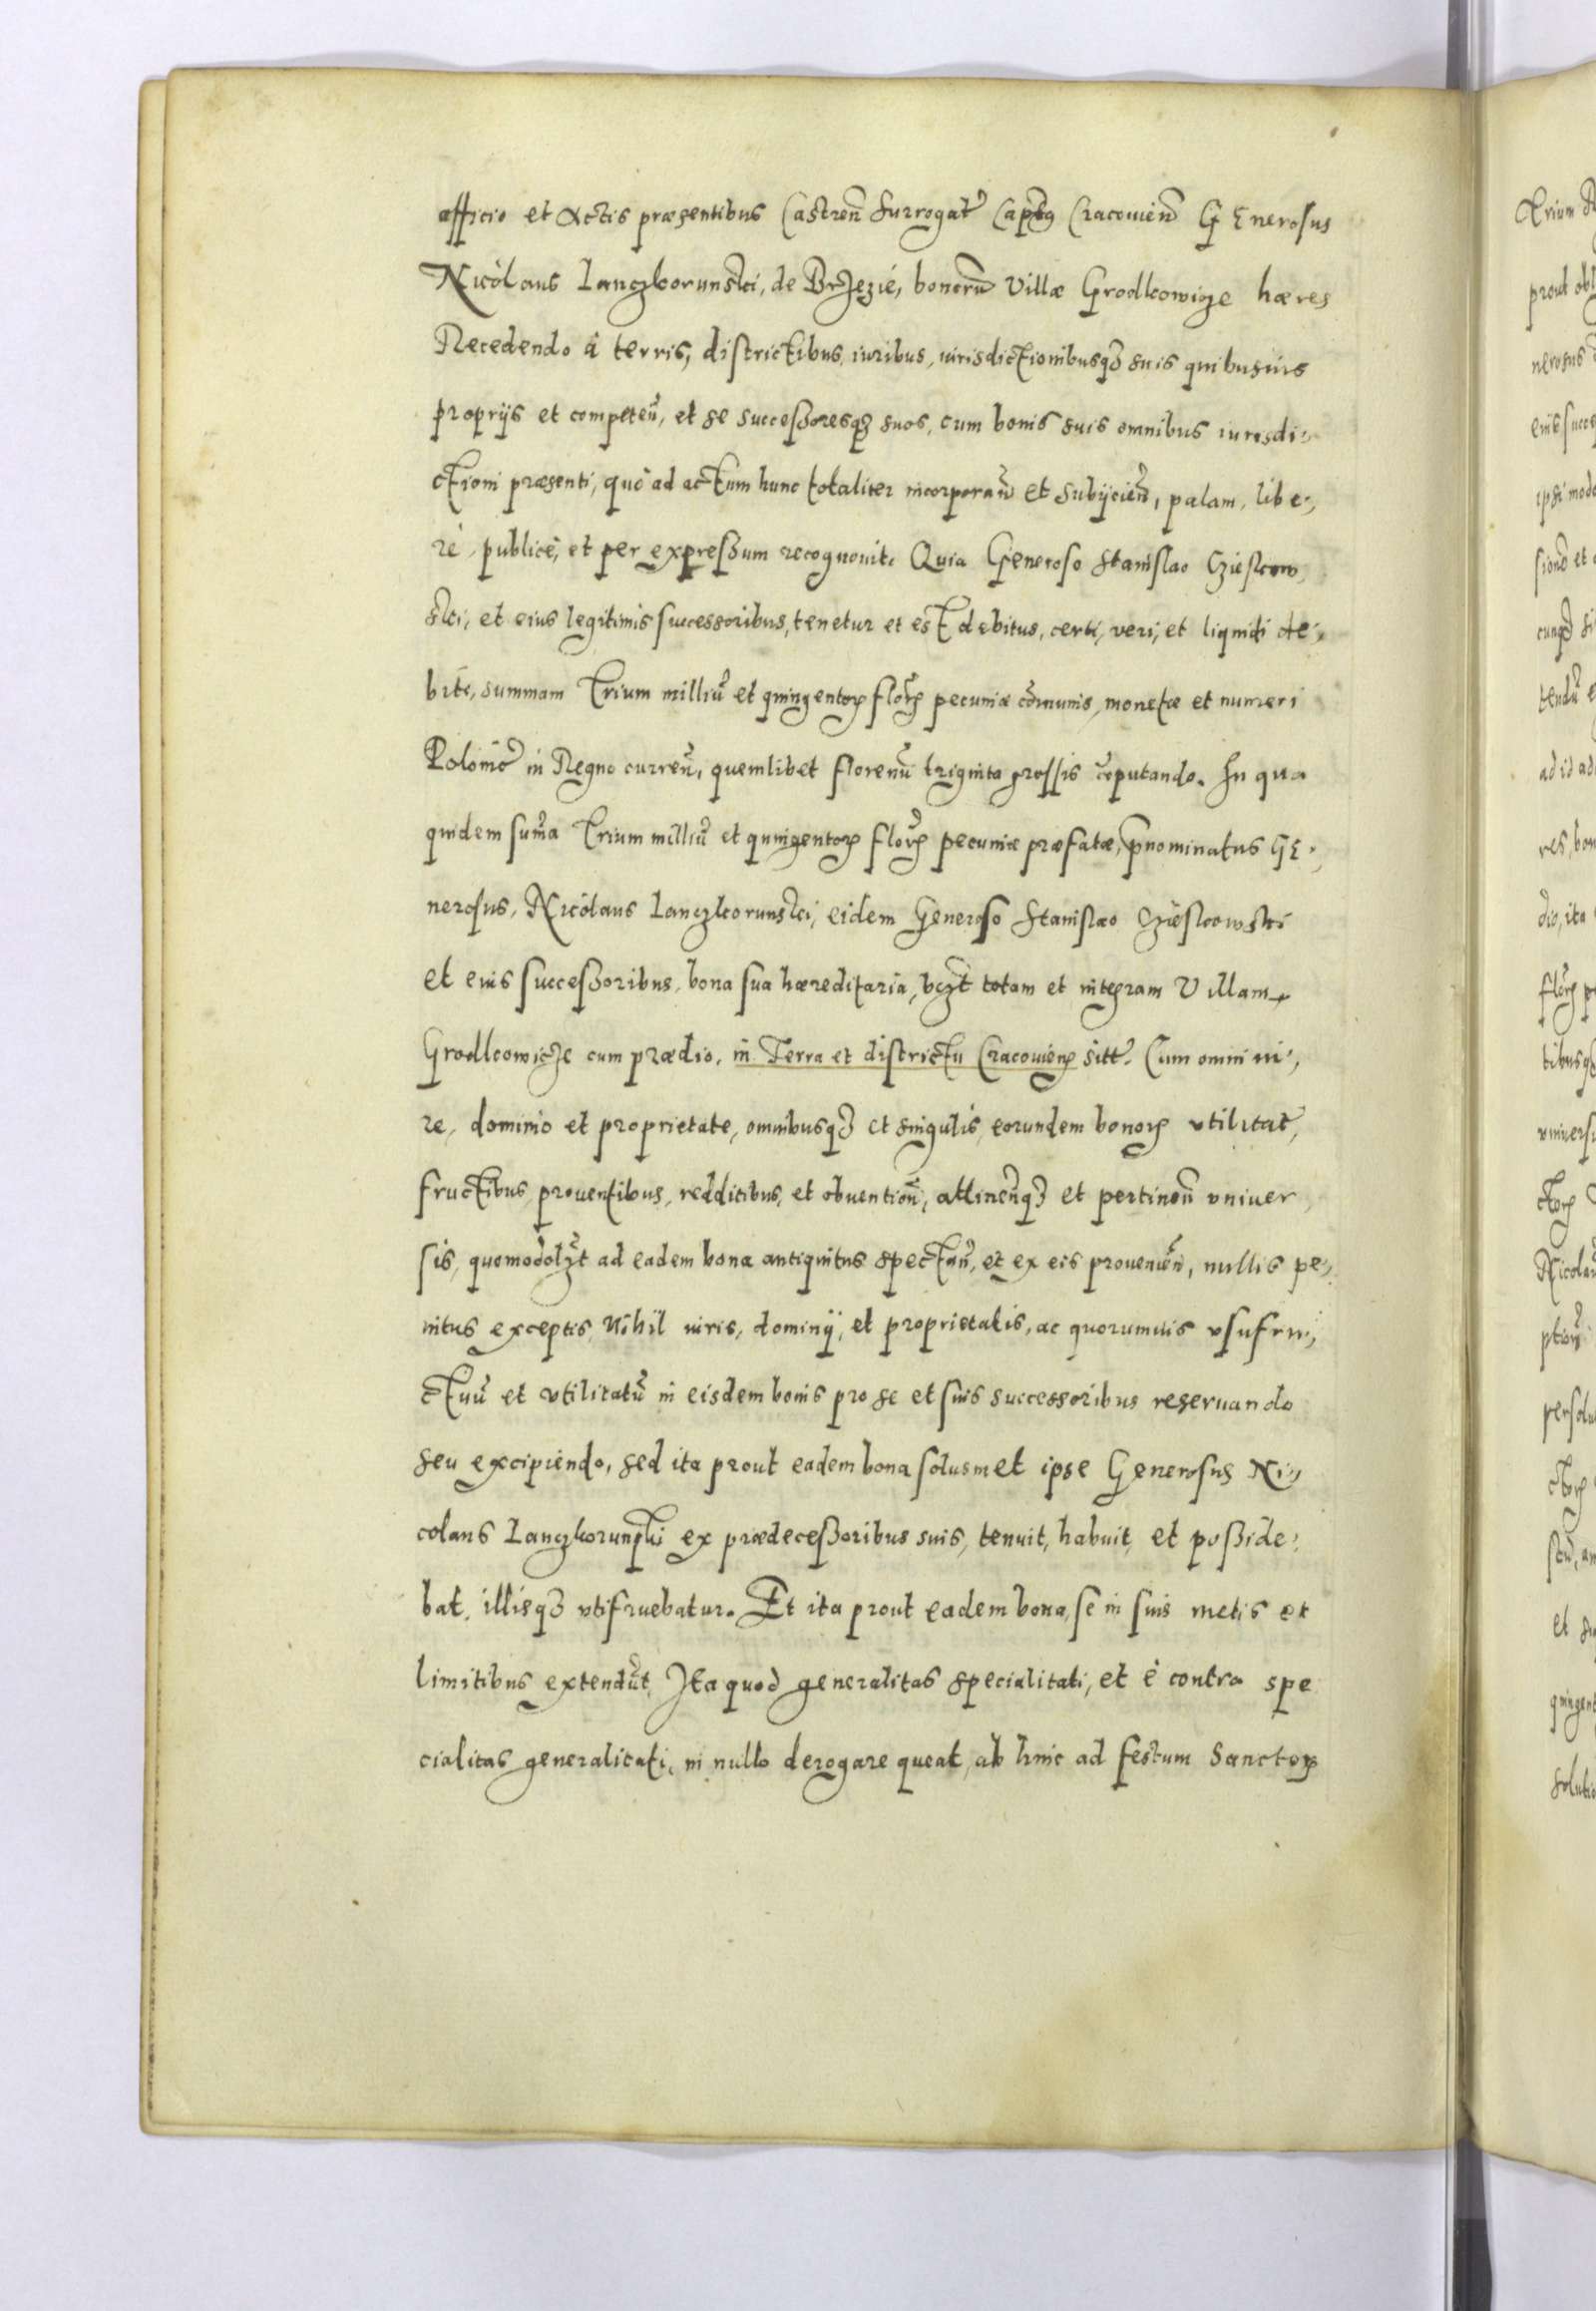 officio et Actis præsentibus Castreñ Surrogat Capteg Cracouień GEnerosus
Nicolaus Lanczkorunski, de Brzezie, bonorũ Villæ Grodkowicze hæres
Recedendo à terris, districtibus, iuribus, iurisdictionibusq3 suis quibusuis
proprijs et competeñ, et se successoresq3 suos, cum bonis suis omnibus iurisdi-,
ctioni præsenti, quo ad actum hunc totaliter incorporañ et subijcień, palam, libe-,
rè, publicè, et per expressum recognouit. Quia Generoso Stanislao Czieskow
ski, et eius legitimis successoribus, tenetur et est debitus, certi, veri, et liquidi de-,
biti, summam Trium milliũ et quingentoꝝ floꝝ pecuniæ cõmunis, monetæ et numeri
Polonic in Regno curreñ, quemlibet florenũ triginta grossis cõputando. In qua
quidem sum̃a Trium milliũ et quingentoꝝ floꝝ pecuniæ præfatæ, p̃nominatus GE-,
nerosus, Nicolaus Lanczkorunski, eidem Generoso Stanislao Czieskowski
et eius successoribus, bona sua hæreditaria, vczt totam et integram Villam
Grodkowicze cum prædio, in Terra et districtu Cracouienꝝ sitt. Cum omni iu-,
re, dominio et proprietate, omnibusq3 et singulis, eorundem bonoꝝ vtilitat,
fructibus, prouentibus, redditibus, et obuentioñ, attineñq3 et pertineñ vniuer
sis, quomodolzt ad eadem bona antiquitus spectañ, et ex eis prouenień, nullis pe-,
nitus exceptis, Nihil iuris, dominij, et proprietatis, ac quorumuis vsufru-,
ctuũ et vtilitatũ in eisdem bonis pro se et suis successoribus reseruando
seu excipiendo, sed ita prout eadem bona solusmet ipse Generosus Ni-,
colaus Lanczkorunski ex prædecessoribus suis, tenuit, habuit, et posside-,
bat, illisq3 vtifruebatur. Et ita prout eadem bona, se in suis metis et
limitibus extendũt, Ita quod generalitas specialitati, et è contra spe
cialitas generalitati, in nullo derogare queat, ab hinc ad festum Sanctoꝝ